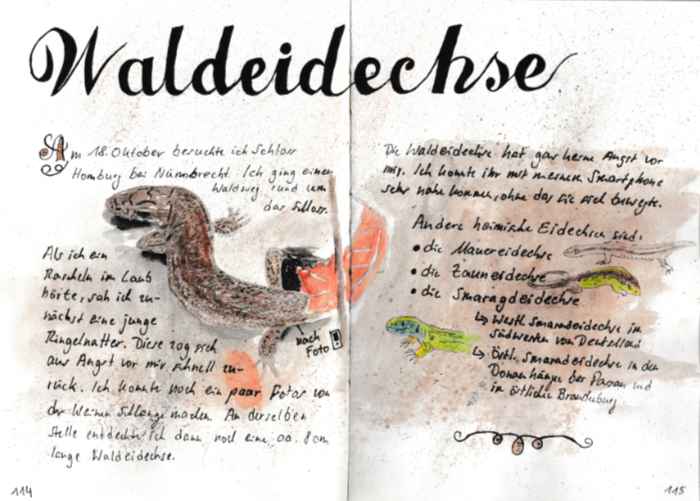 Waldeidechse
Am 18. Oktober besuchte ich Schloss
Homburg bei Nümbrecht. Ich ging einen
Waldweg rund um
das Schloss.
Als ich ein
Rascheln im Laub
hörte, sah ich zu-
nächst eine junge
Ringelnatter. Diese zog sich
aus Angst vor mir schnell zu-
rück. Ich konnte noch ein paar Fotos von
der kleinen Schlange machen. An derselben
Stelle entdeckte ich dann noch eine ca. 8 cm
lange Waldeidechse.
nach
Foto
114
Die Waldeidechse hat gar keine Angst vor
mir. Ich konnte ihr mit meinem Smartphone
sehr nahe kommen, ohne das sie sich bewegte.
Andere heimische Eidechsen sind:
• die Mauereidechse
• die Zauneidechse
• die Smaragdeidechse
↳ Westl. Smaragdeidechse im
Südwesten von Deutschland
↳ Östl. Smaragdeidechse in den
Donauhänge bei Passau und
im östliche Brandenburg
115